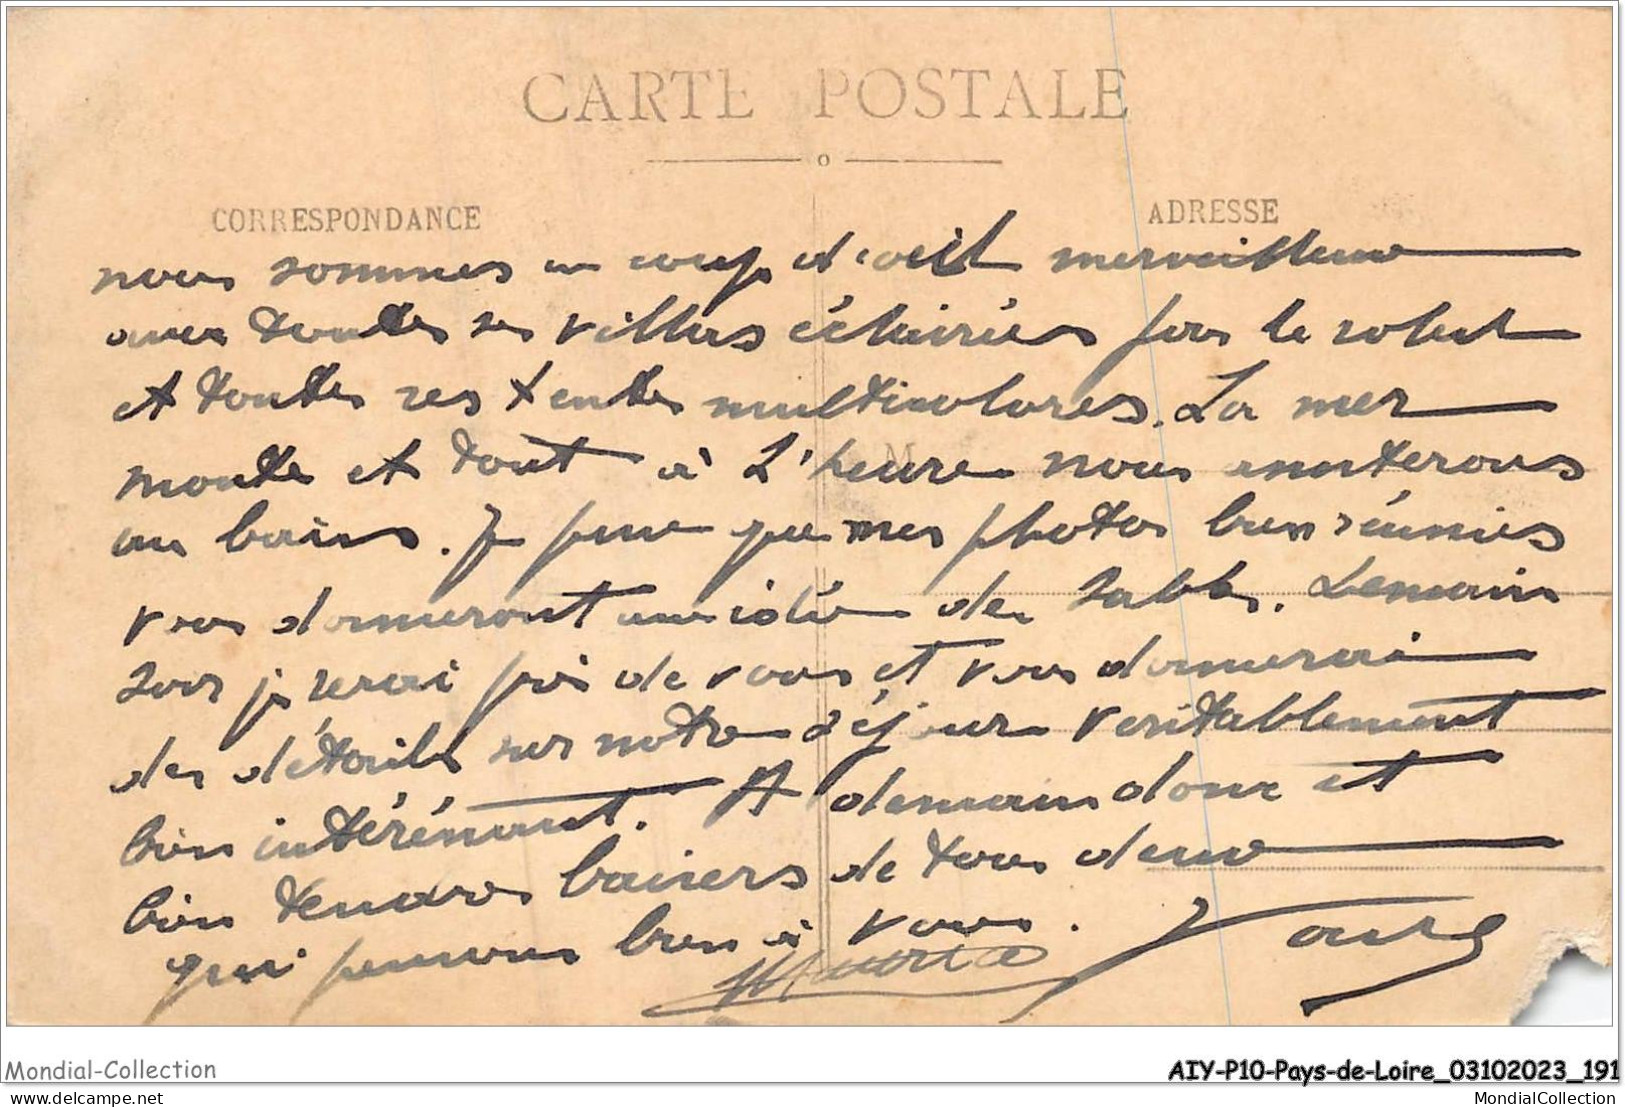 CARTE POSTALE
CORRESPONDANCE
ADRESSE
nous sommes un coup d'oeil merveilleux
avec toutes ses villas éclairées par le soleil
et toutes ses tentes multicolores. La mer
monte et tout à l'heure nous
au bain. Je pense que mes photos bien réunies
vous donneront une idée des Sables. Demain
soir je serai près de vous et vous donnerai
des détails sur notre séjour véritablement
bien intéressant. A demain donc et
bien tendres baisers de tous deux
qui pensons bien à vous.
M
Mondial-Collection
AIY-P10-Pays-de-Loire_03102023_191
delcampe.net
MondialCollection